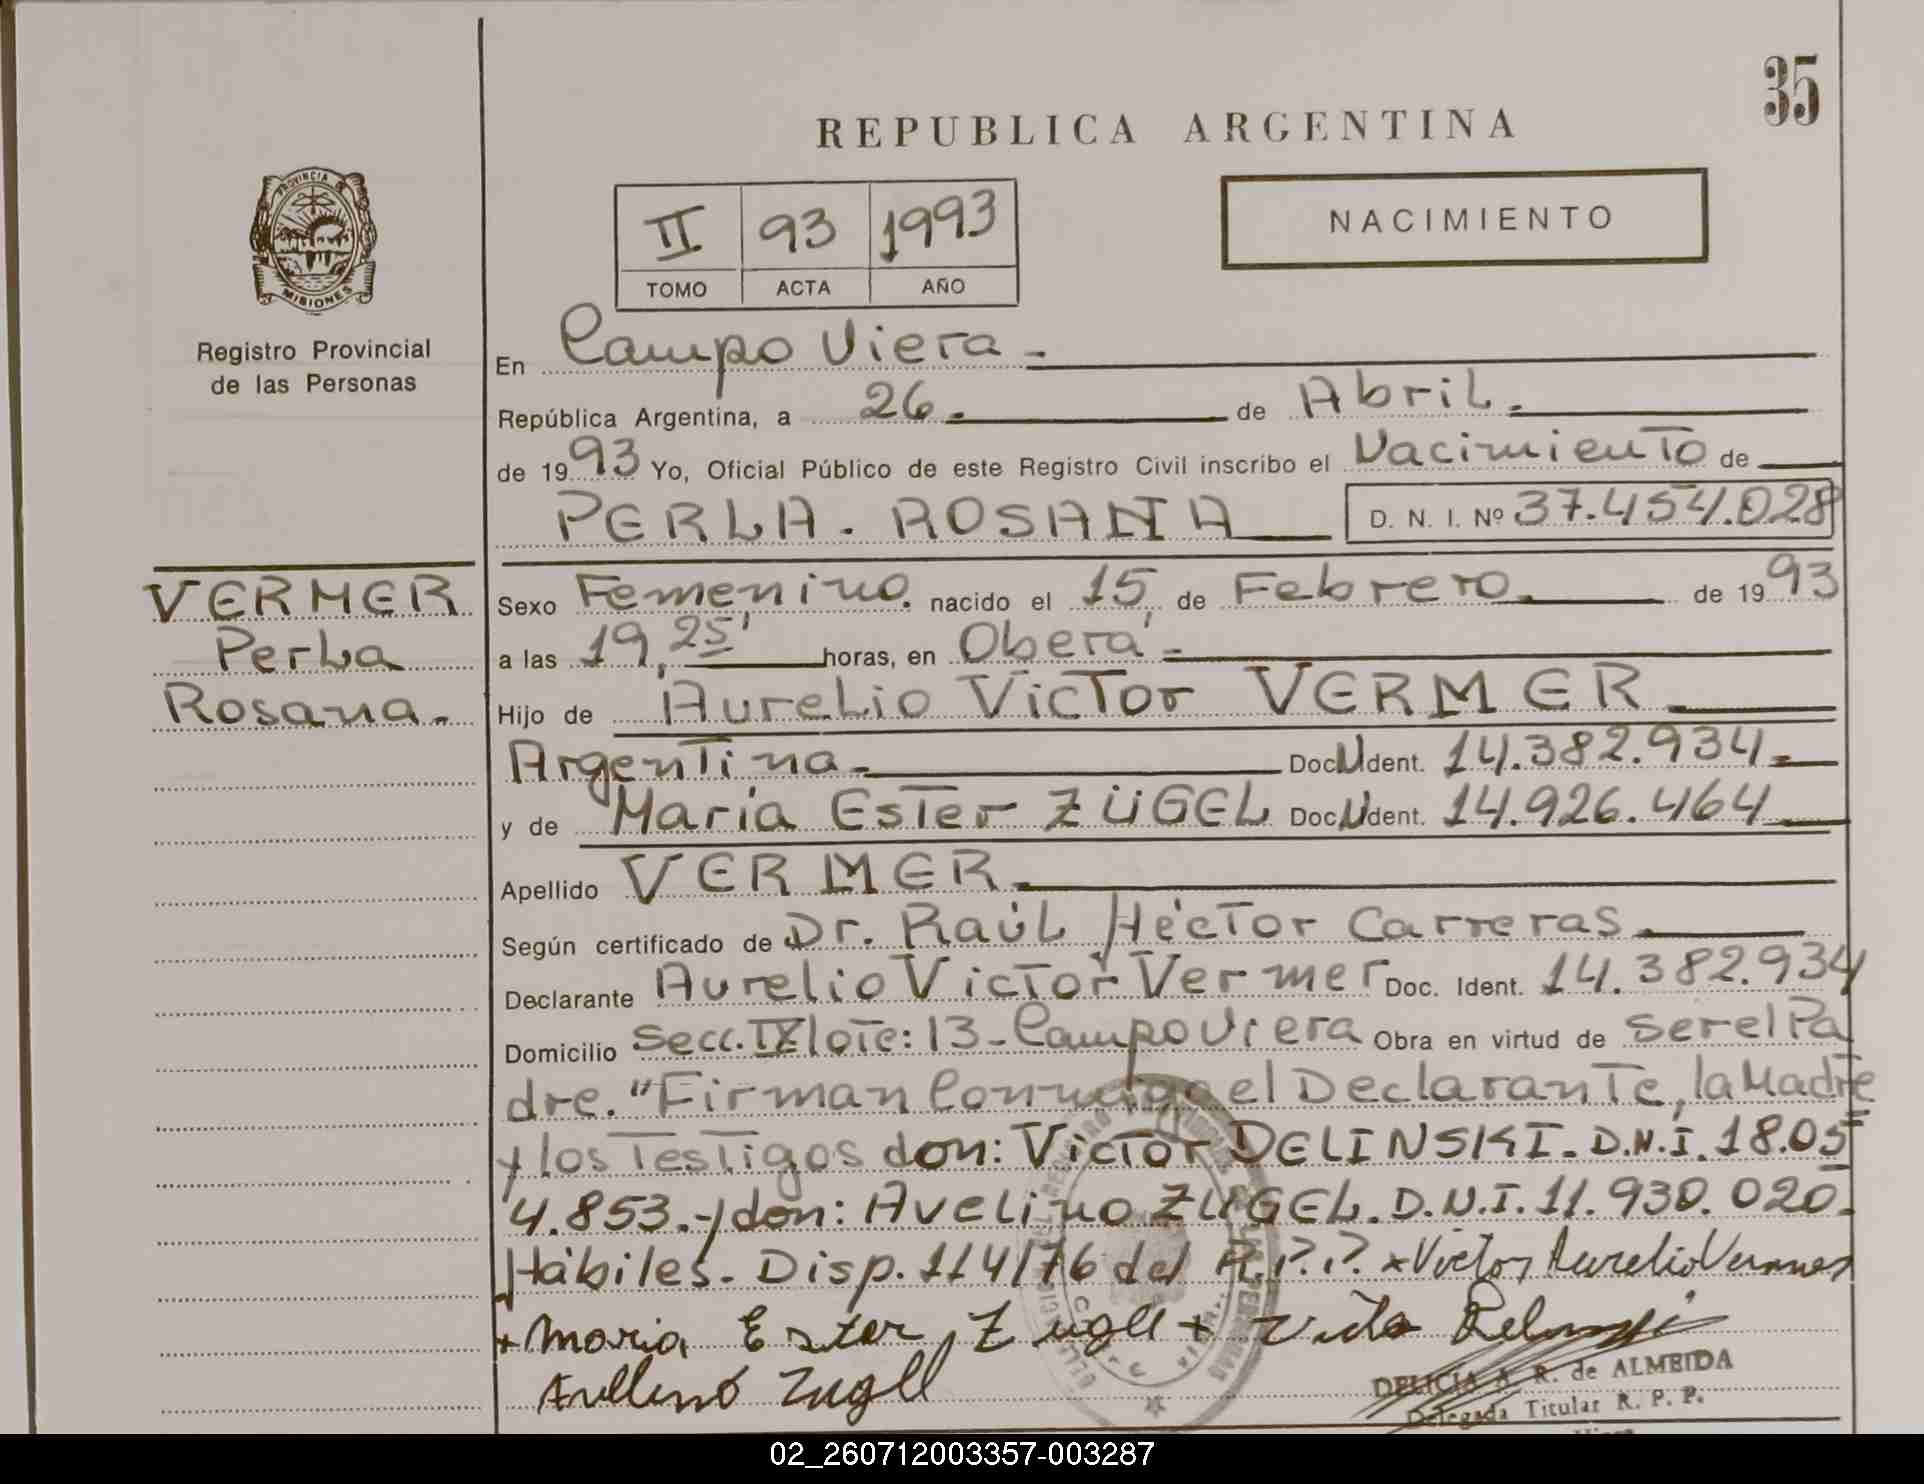 35
REPUBLICA ARGENTINA
PROVINCIA DE
MISIONES
Registro Provincial
de las Personas
II 93 1993
TOMO ACTA AÑO
NACIMIENTO
En Campo Viera.-
República Argentina, a 26.- de Abril.-
de 1993 Yo, Oficial Público de este Registro Civil inscribo el Nacimiento de
PERLA. ROSANA D. N. I. Nº 37.454.028
VERMER
Perla
Rosana.-
Sexo Femenino. nacido el 15 de Febrero.- de 1993
a las 19,25' horas, en Oberá.-
Hijo de Aurelio Victor VERMER
Argentina.- Doc. N Ident. 14.382.934.-
y de María Ester ZÜGEL Doc. N Ident. 14.926.464
Apellido VERMER.-
Según certificado de Dr. Raúl Héctor Carreras.-
Declarante Aurelio Victor Vermer Doc. Ident. 14.382.934
Domicilio Secc. IX lote: 13-Campo Viera Obra en virtud de ser el Pa
dre. "Firman Conmigo el Declarante, la Madre
y los Testigos don: Victor DELINSKI. D.N.I. 18.05
4.853.- y don: Avelino ZÜGEL. D.N.I. 11.930.020.
Hábiles.- Disp. 114/76 del R.P.P. x Victor Aurelio Vermer
+ Maria Ester Zugel +
Avelino Zugel
DELICIA A. R. de ALMEIDA
Delegada Titular R. P. P.
02_260712003357-003287